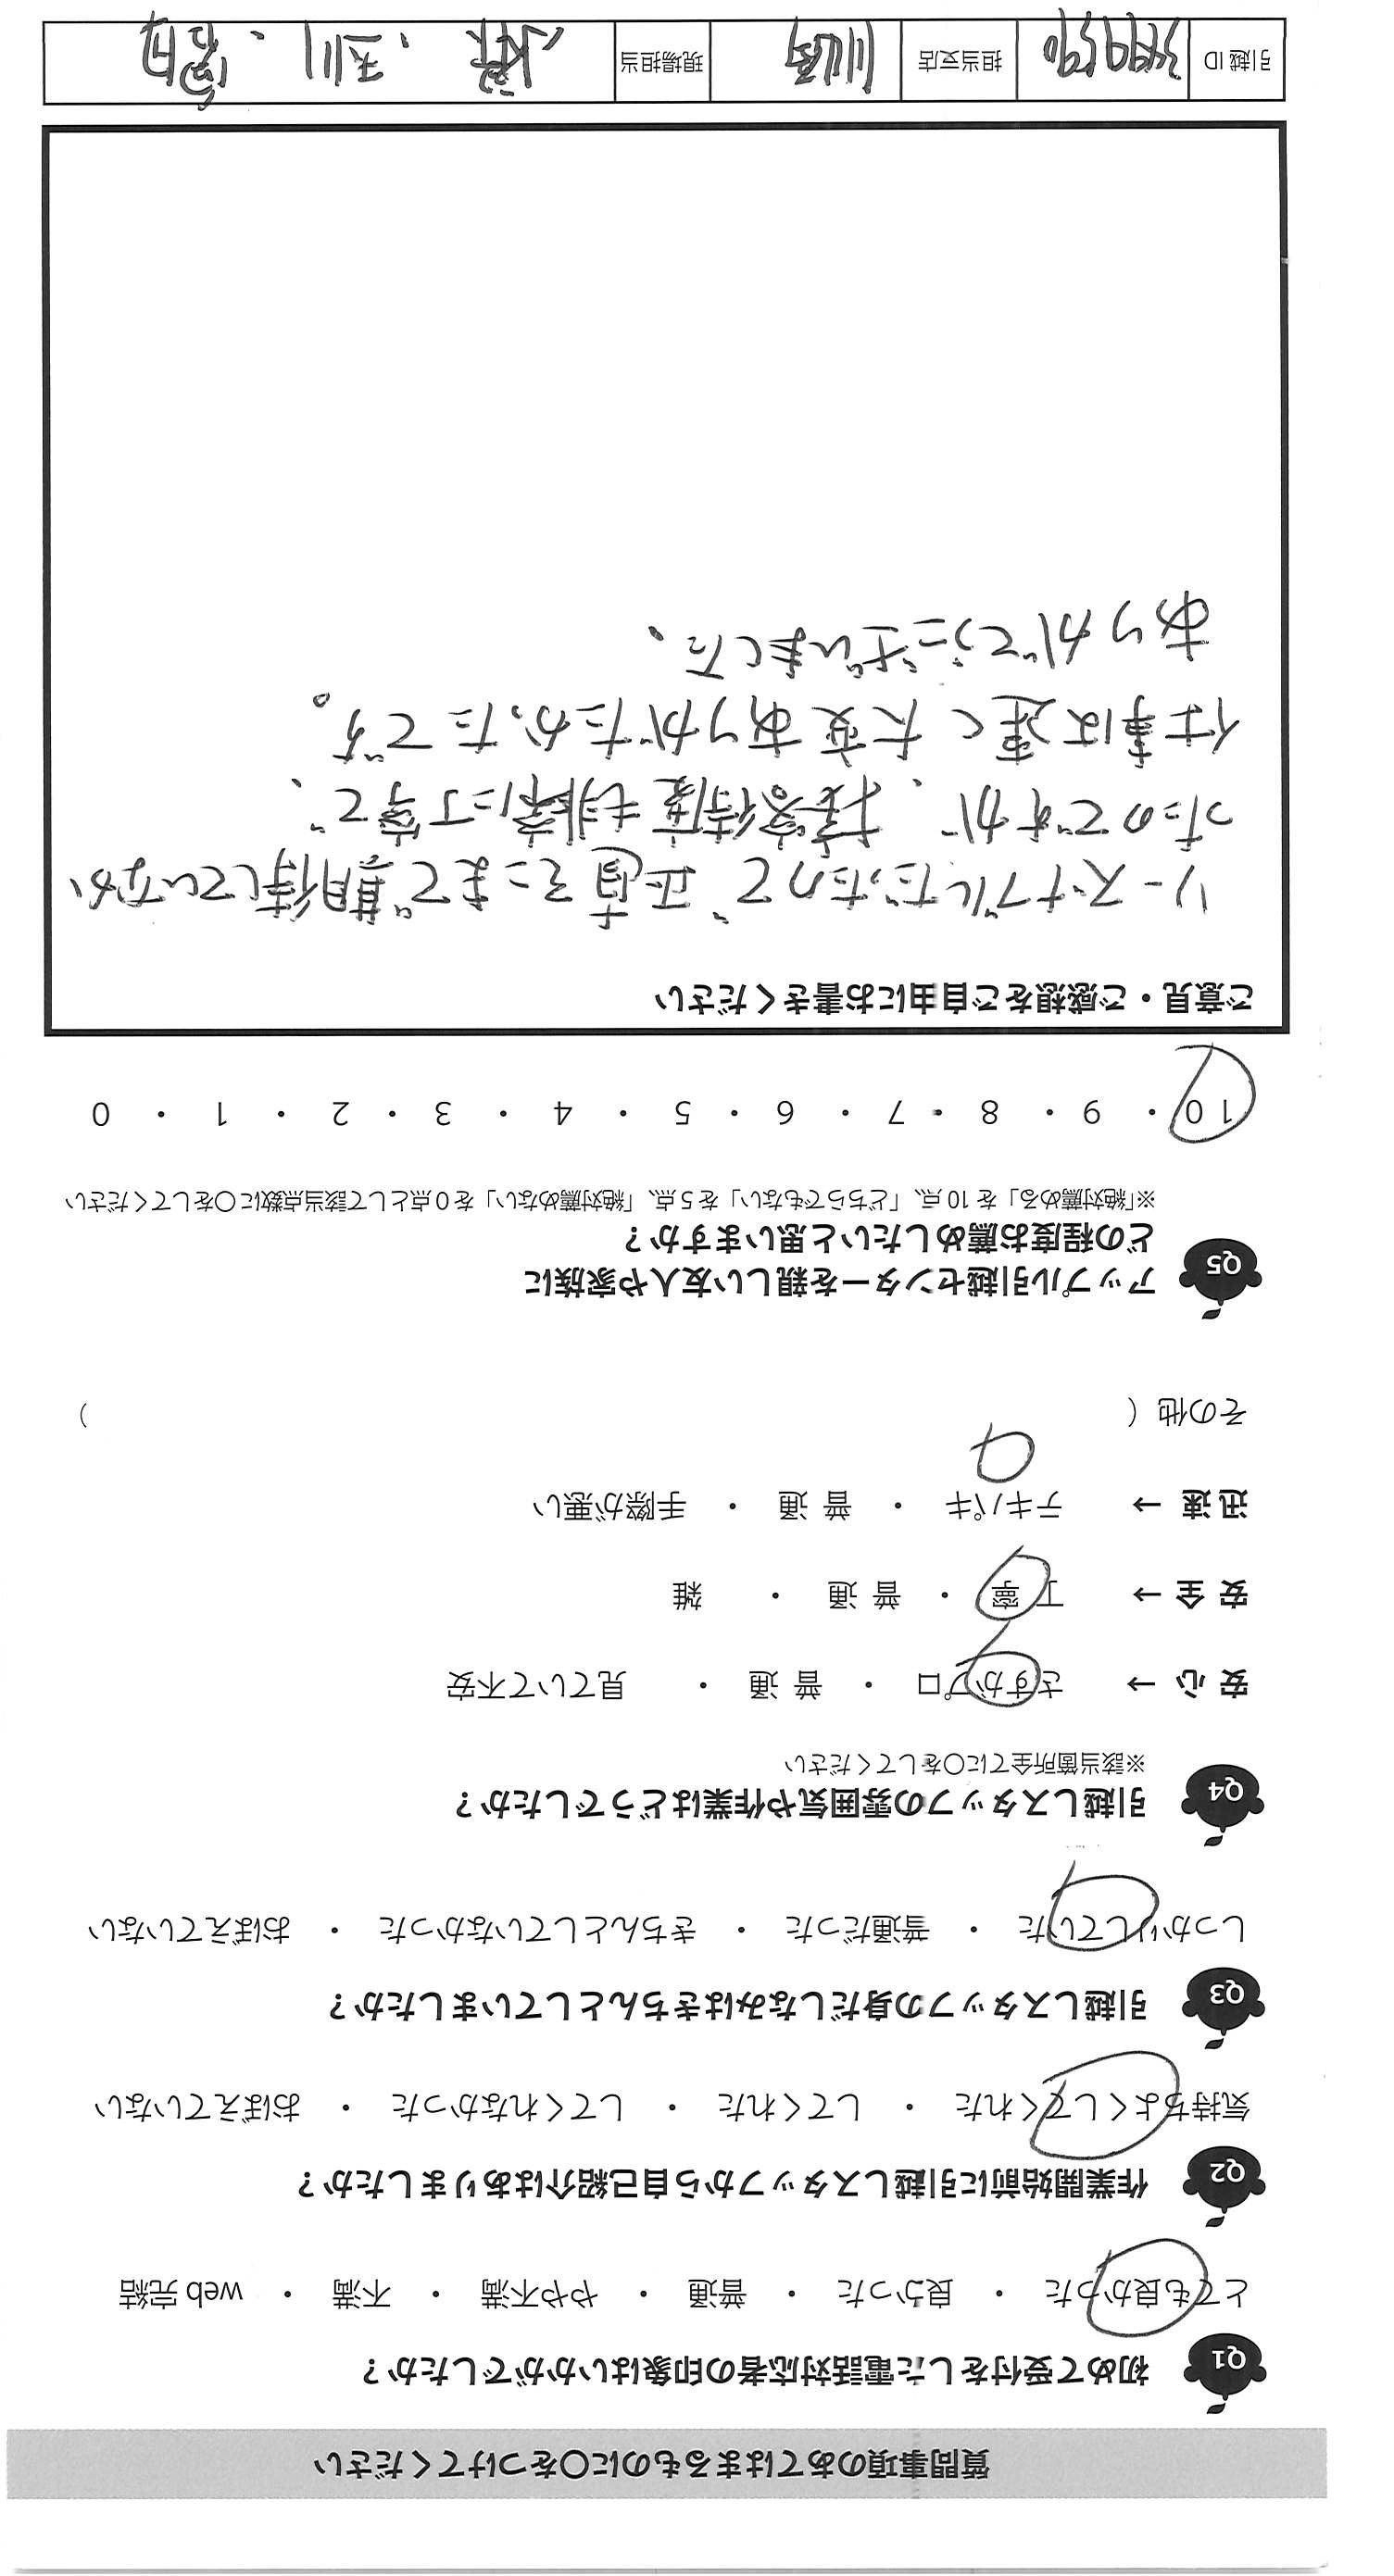 質問事項のあてはまるものに〇をつけてください
Q1 初めて受付をした電話対応者の印象はいかがでしたか？
とても良かった ・ 良かった ・ 普通 ・ やや不満 ・ 不満 ・ web 完結
Q2 作業開始前に引越しスタッフから自己紹介はありましたか？
気持ちよくしてくれた ・ してくれた ・ してくれなかった ・ おぼえていない
Q3 引越しスタッフの身だしなみはきちんとしていましたか？
しっかりしていた ・ 普通だった ・ きちんとしていなかった ・ おぼえていない
Q4 引越しスタッフの雰囲気や作業はどうでしたか？
※該当箇所全てに〇をしてください
安 心 → さすがプロ ・ 普 通 ・ 見ていて不安
安 全 → 丁 寧 ・ 普 通 ・ 雑
迅 速 → テキパキ ・ 普 通 ・ 手際が悪い
その他（ ）
Q5 アップル引越センターを親しい友人や家族に
どの程度お薦めしたいと思いますか？
※「絶対薦める」を 10 点、「どちらでもない」を 5 点、「絶対薦めない」を 0 点として該当点数に〇をしてください
10 ・ 9 ・ 8 ・ 7 ・ 6 ・ 5 ・ 4 ・ 3 ・ 2 ・ 1 ・ 0
ご意見・ご感想をご自由にお書きください
リーズナブルだったので正直そこまで期待していなか
ったのですが、接客待度も非常に丁寧で、
仕事は速く大変ありがたかったです。
ありがとうございました。
引越 ID 担当支店 川崎 現場担当